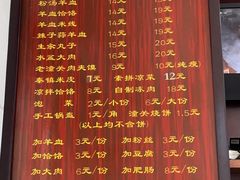 粉汤羊血 14元
羊血恰饹 14元
羊血米线 14元
辣子蒜羊血 15元
生汆丸子 15元
水盆大肉 15元
老潼关肉夹馍 9元 10元(纯瘦)
秦镇米皮 7元 素拼凉菜 12元
凉拌恰饹 8元 自制冻肉 18元
泡菜 2元/小份 6元/大份
手工锅盔 1元 潼关烧饼 1.5元
(以上均不含饼)
加羊血 3元/份 加粉丝 3元/份
加恰饹 3元/份 加豆腐 3元/份
加大肉 6元/份 加肥肠 8元/份